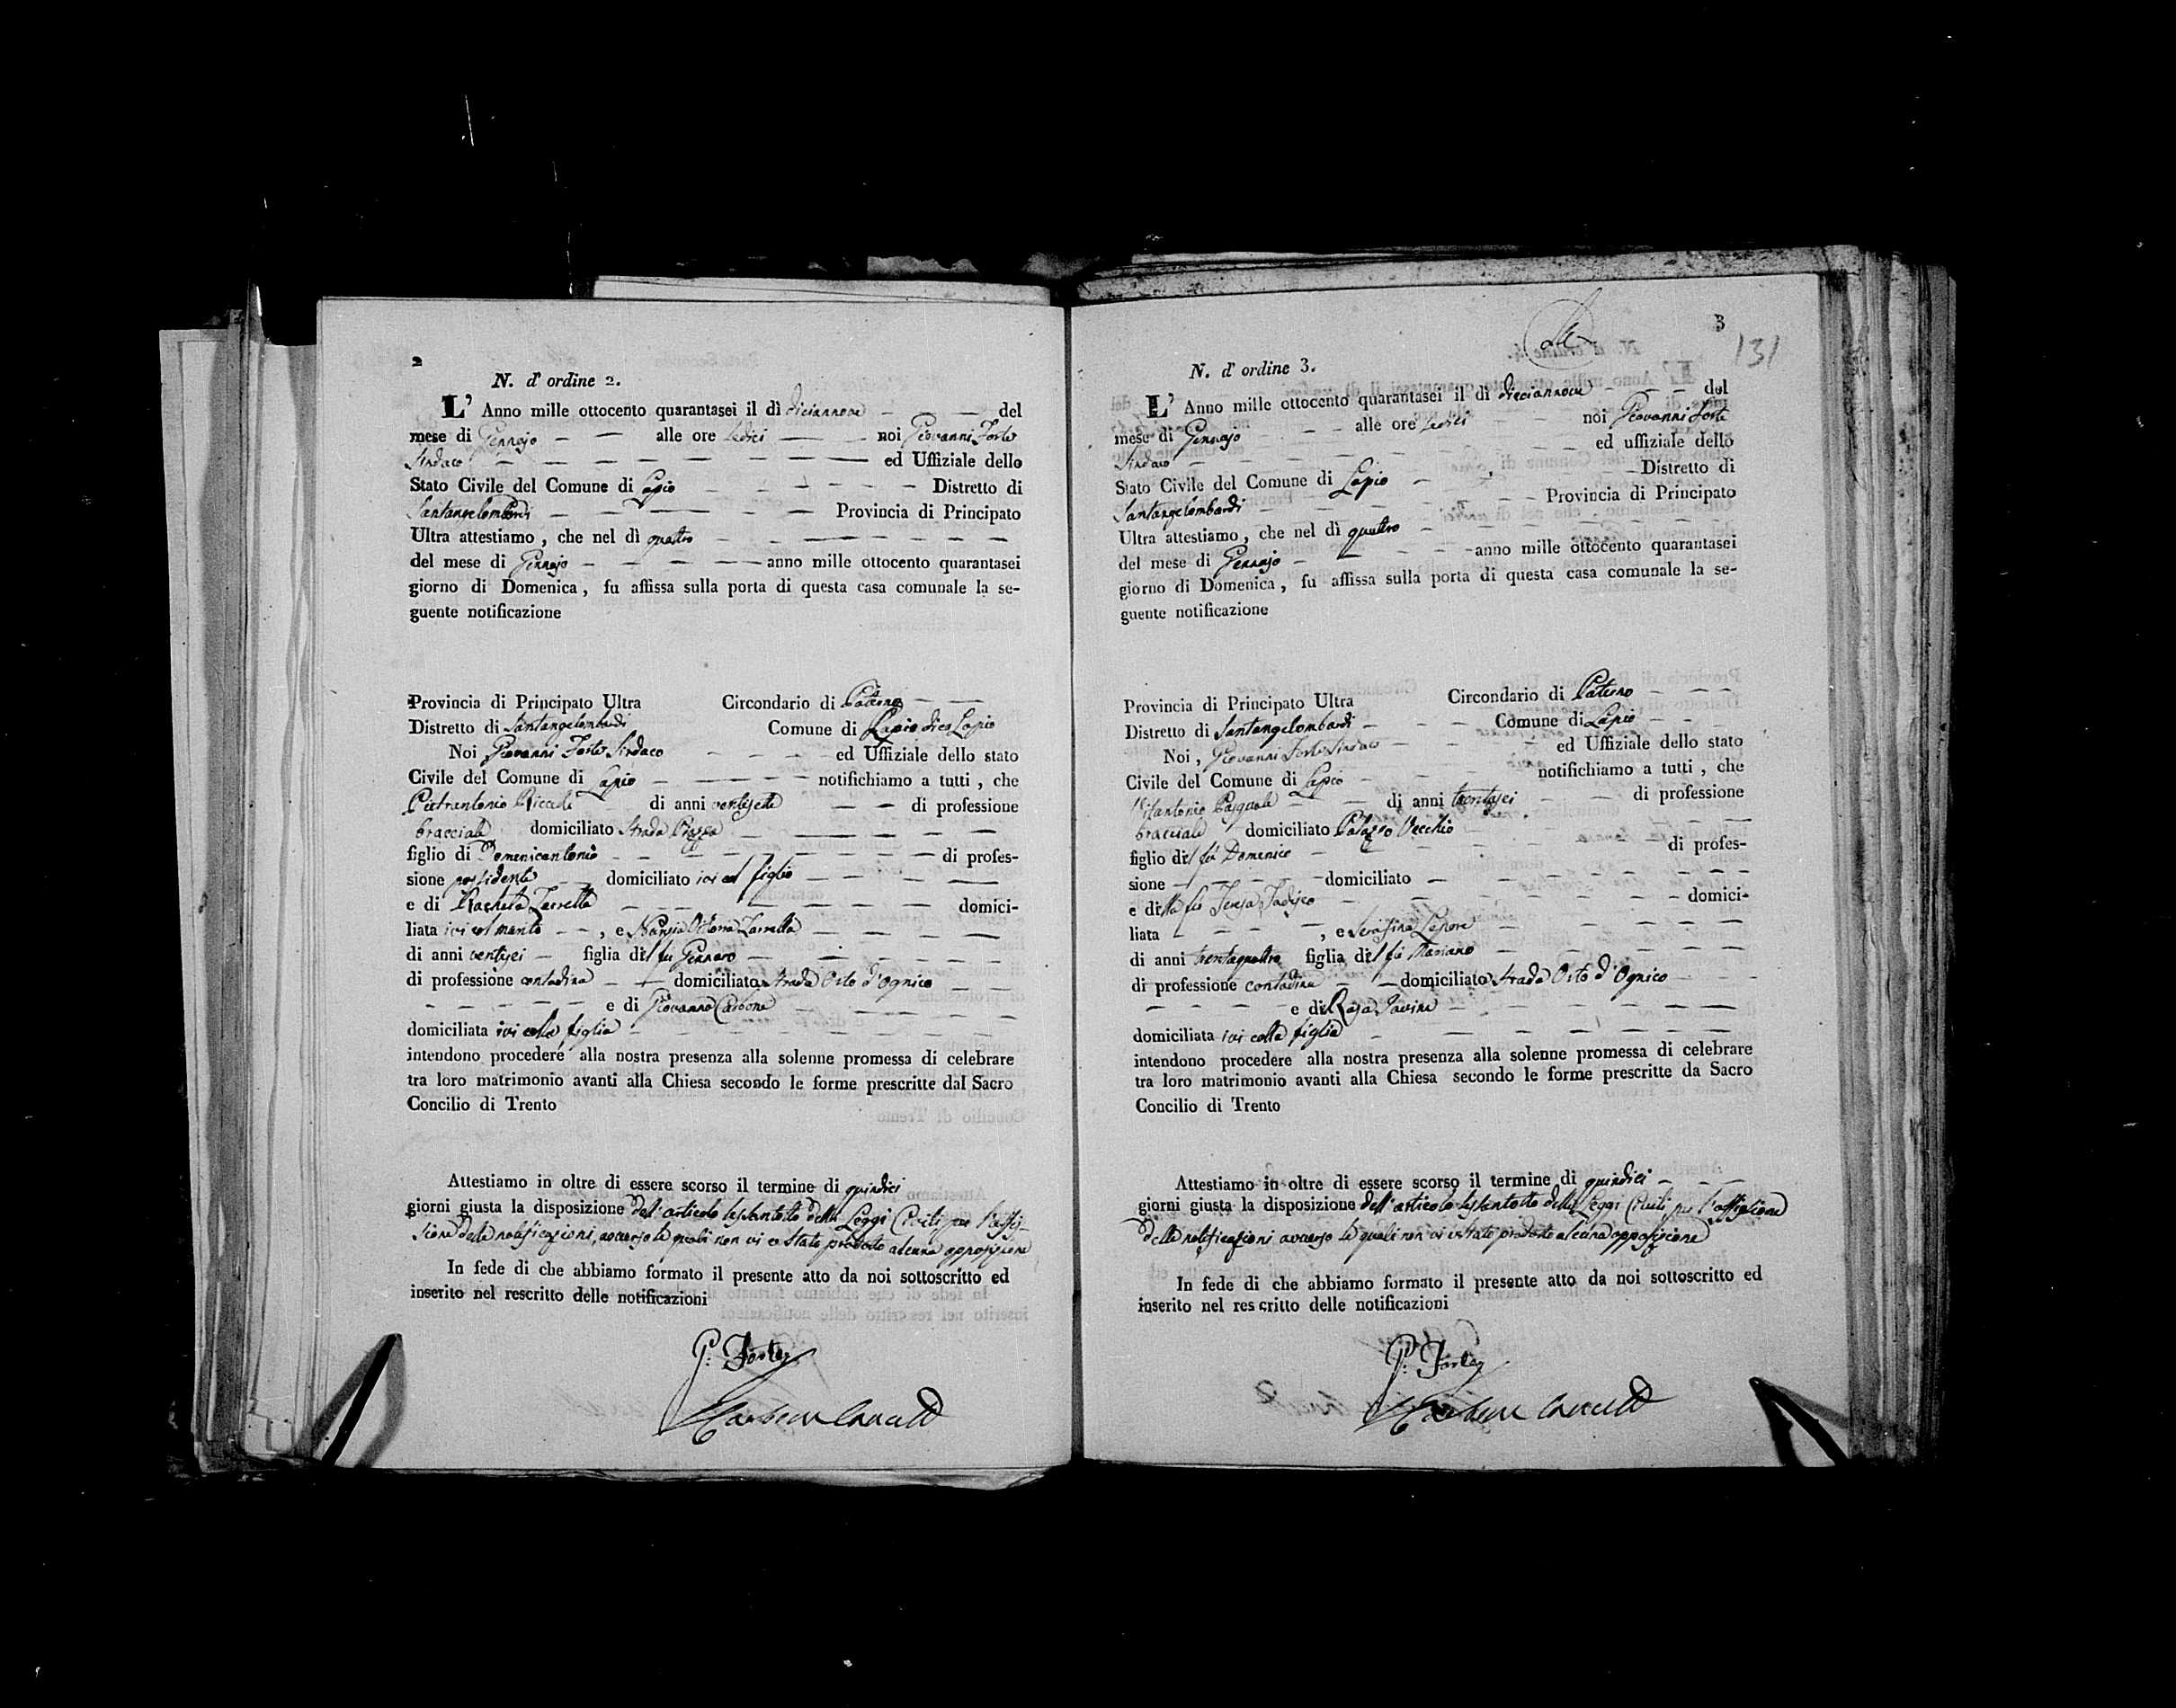 2
N. d' ordine 2.
L' Anno mille ottocento quarantasei il dì diciannove del
mese di Gennajo alle ore sedici noi Giovanni Forte
Sindaco ed Uffiziale dello
Stato Civile del Comune di Lapio Distretto di
Santangelombardi Provincia di Principato
Ultra attestiamo, che nel dì quattro
del mese di Gennajo anno mille ottocento quarantasei
giorno di Domenica, fu affissa sulla porta di questa casa comunale la se-
guente notificazione
Provincia di Principato Ultra Circondario di Paterno
Distretto di Santangelombardi Comune di Lapio Lapio
Noi Giovanni Forte Sindaco ed Uffiziale dello stato
Civile del Comune di Lapio notifichiamo a tutti, che
Pietrantonio di anni ventisette di professione
bracciale domiciliato Strada Piazza
figlio di Domenicantonio di profes-
sione possidente domiciliato ivi col figlio
e di Zarrella domici-
liata ivi col marito, e Vittoria Zarrella
di anni ventisei figlia del fu Gennaro
di professione contadina domiciliata Strada Orto d'Ognico
e di Giovanna Carbone
domiciliata ivi colla figlia
intendono procedere alla nostra presenza alla solenne promessa di celebrare
tra loro matrimonio avanti alla Chiesa secondo le forme prescritte dal Sacro
Concilio di Trento
Attestiamo in oltre di essere scorso il termine di quindici
giorni giusta la disposizione dell'articolo sessantotto delle Leggi Civili per l'affis-
sione delle notificazioni, avverso le quali non vi è stato prodotto alcuna opposizione
In fede di che abbiamo formato il presente atto da noi sottoscritto ed
inserito nel rescritto delle notificazioni
G. Forte
3
131
N. d' ordine 3.
L' Anno mille ottocento quarantasei il dì dieciannove del
mese di Gennajo alle ore sedici noi Giovanni Forte
Sindaco ed uffiziale dello
Stato Civile del Comune di Lapio Distretto di
Santangelombardi Provincia di Principato
Ultra attestiamo, che nel dì quattro
del mese di Gennajo anno mille ottocento quarantasei
giorno di Domenica, fu affissa sulla porta di questa casa comunale la se-
guente notificazione
Provincia di Principato Ultra Circondario di Paterno
Distretto di Santangelombardi Comune di Lapio
Noi, Giovanni Forte Sindaco ed Uffiziale dello stato
Civile del Comune di Lapio notifichiamo a tutti, che
Pasquale di anni trentasei di professione
bracciale domiciliato Palazzo Vecchio
figlio del fù Domenico di profes-
sione domiciliato
e della fù Teresa domici-
liata, e Serafina Lepore
di anni trentaquattro figlia del fù Mariano
di professione contadina domiciliata Strada Orto d'Ognico
e di Rosa
domiciliata ivi colla figlia
intendono procedere alla nostra presenza alla solenne promessa di celebrare
tra loro matrimonio avanti alla Chiesa secondo le forme prescritte da Sacro
Concilio di Trento
Attestiamo in oltre di essere scorso il termine di quindici
giorni giusta la disposizione dell'articolo sessantotto delle Leggi Civili per l'affissione
delle notificazioni avverso le quali non vi è stato prodotto alcuna opposizione
In fede di che abbiamo formato il presente atto da noi sottoscritto ed
inserito nel rescritto delle notificazioni
G. Forte